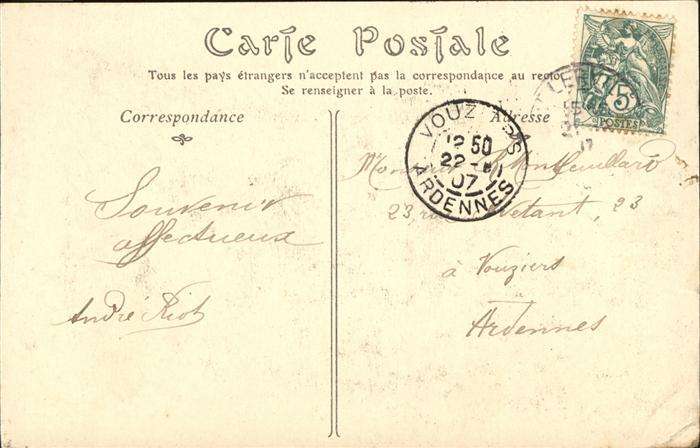 Carte Postale
Tous les pays étrangers n'acceptent pas la correspondance au recto
Se renseigner à la poste.
Correspondance
Adresse
Souvenir
affectueux
André Riot
Monsieur
23, 23
à Vouziers
Ardennes
VOUZ RS
12 50
22
07
ARDENNES
5
POSTES